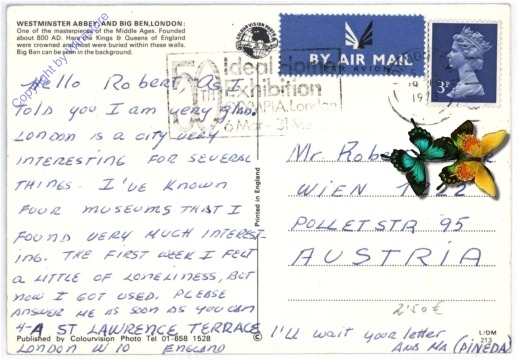 WESTMINSTER ABBEY AND BIG BEN, LONDON:
One of the masterpieces of the Middle Ages. Founded
about 800 AD. Here the Kings & Queens of England
were crowned and most were buried within these walls.
Big Ben can be seen in the background.
Copyright by
COLOUR VISION
BY AIR MAIL
PAR AVION
3P
50TH
Ideal Home
Exhibition
OLYMPIA, London
6 Mar - 31 Mar
19
Hello Robert. As I
told you I am very glad.
LONDON IS A CITY VERY
INTERESTING FOR SEVERAL
THINGS. I'VE KNOWN
FOUR MUSEUMS THAT I
FOUND VERY MUCH INTEREST-
ING. THE FIRST WEEK I FELT
A LITTLE OF LONELINESS, BUT
NOW I GOT USED. PLEASE
ANSWER ME AS SOON AS YOU CAN
4-A ST LAWRENCE TERRACE
LONDON W 10 ENGLAND
Published by Colourvision Photo Tel 01-658 1528
Printed in England
Mr Robe
WIEN
POLLETSTR 95
AUSTRIA
2.50€
L/DM
213
I'll wait your letter
ANA Ma (PINEDA)